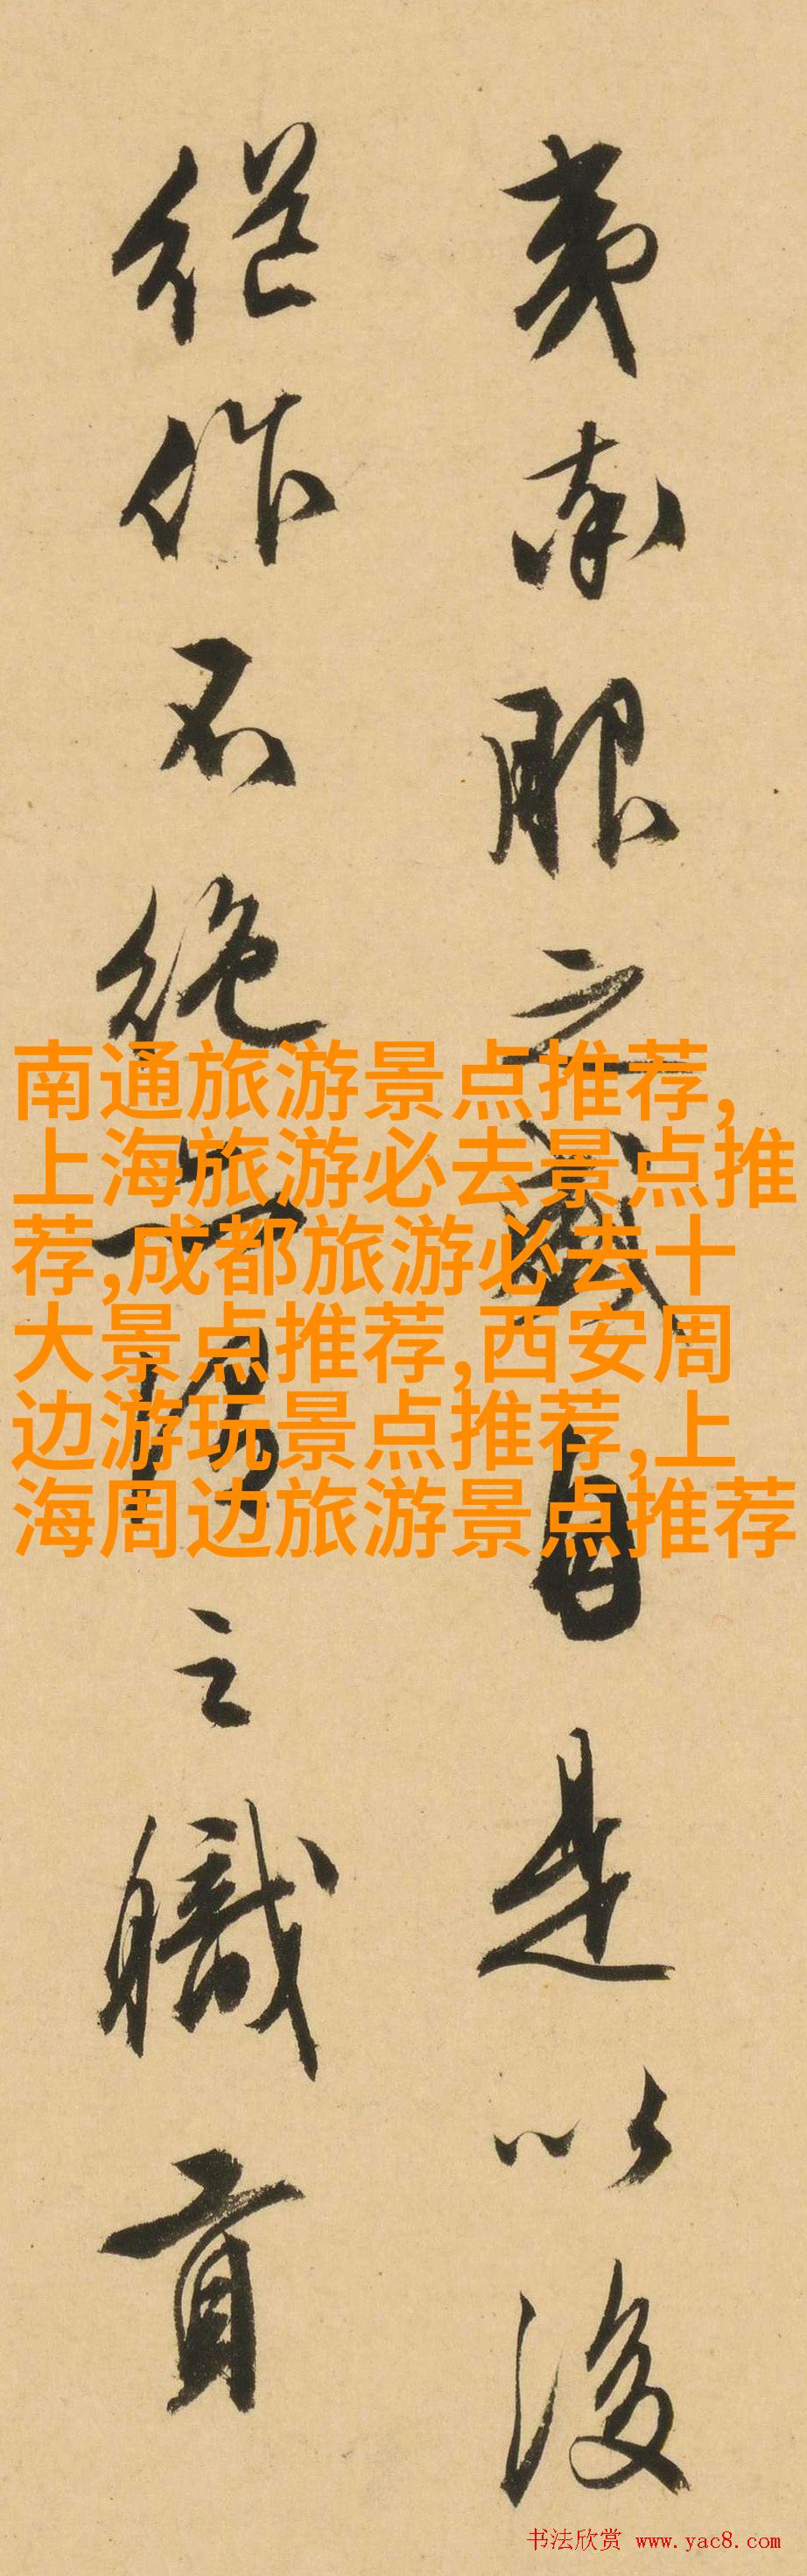 夷服之自是以後
繼作不絶之職貢
南通旅游景点推荐,
上海旅游必去景点推
荐,成都旅游必去十
大景点推荐,西安周
边游玩景点推荐,上
海周边旅游景点推荐
书法欣赏 www.yac8.com